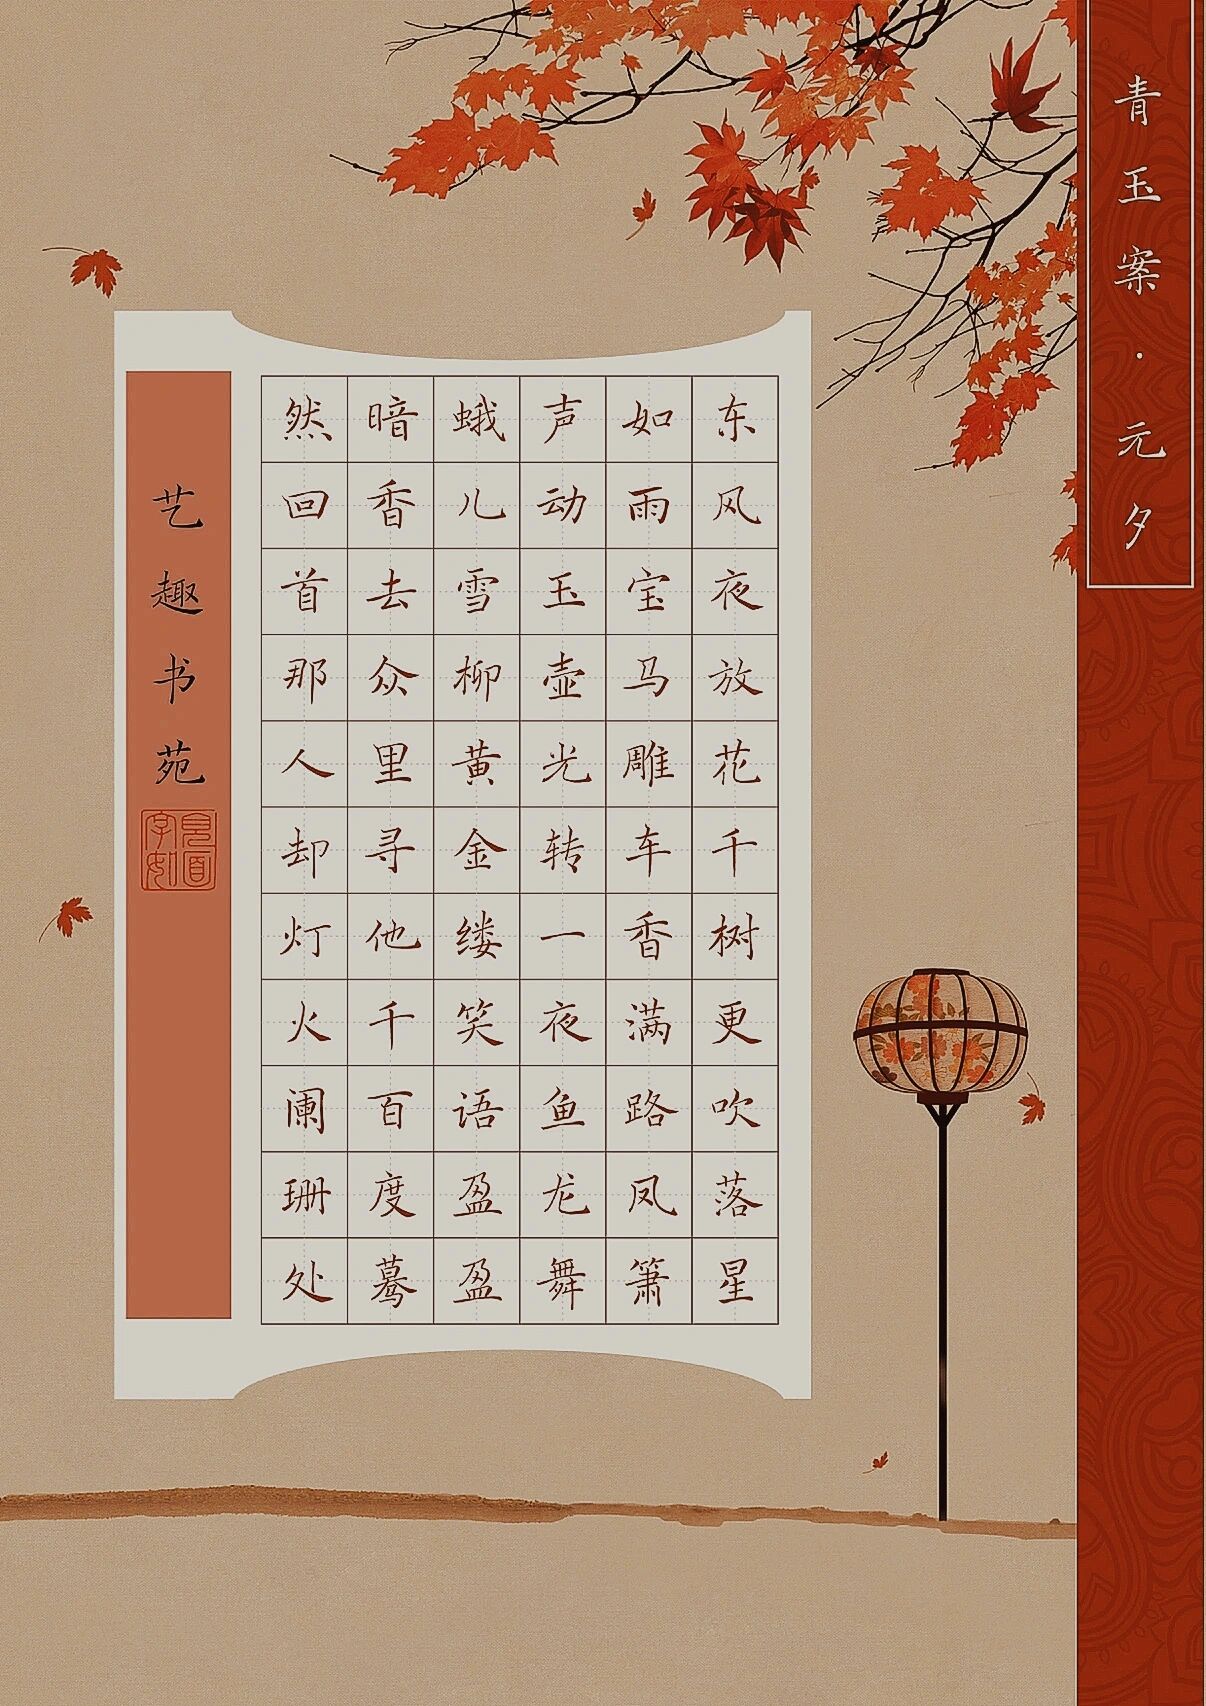 青玉案·元夕
东风夜放花千树更吹落星
如雨宝马雕车香满路凤箫
声动玉壶光转一夜鱼龙舞
蛾儿雪柳黄金缕笑语盈盈
暗香去众里寻他千百度蓦
然回首那人却灯火阑珊处
艺趣书苑
見字如面